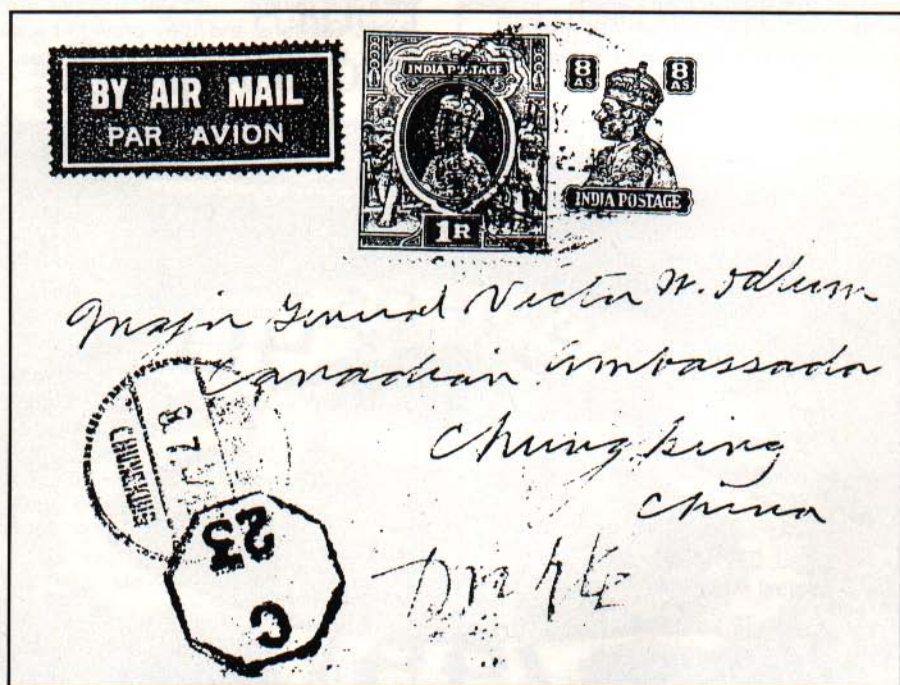 BY AIR MAIL
PAR AVION
INDIA POSTAGE
1R
8 AS
8 AS
INDIA POSTAGE
Major General Victor W. Odlum
Canadian Ambassador
Chungking
China
CHUNGKING
8 7
C
23